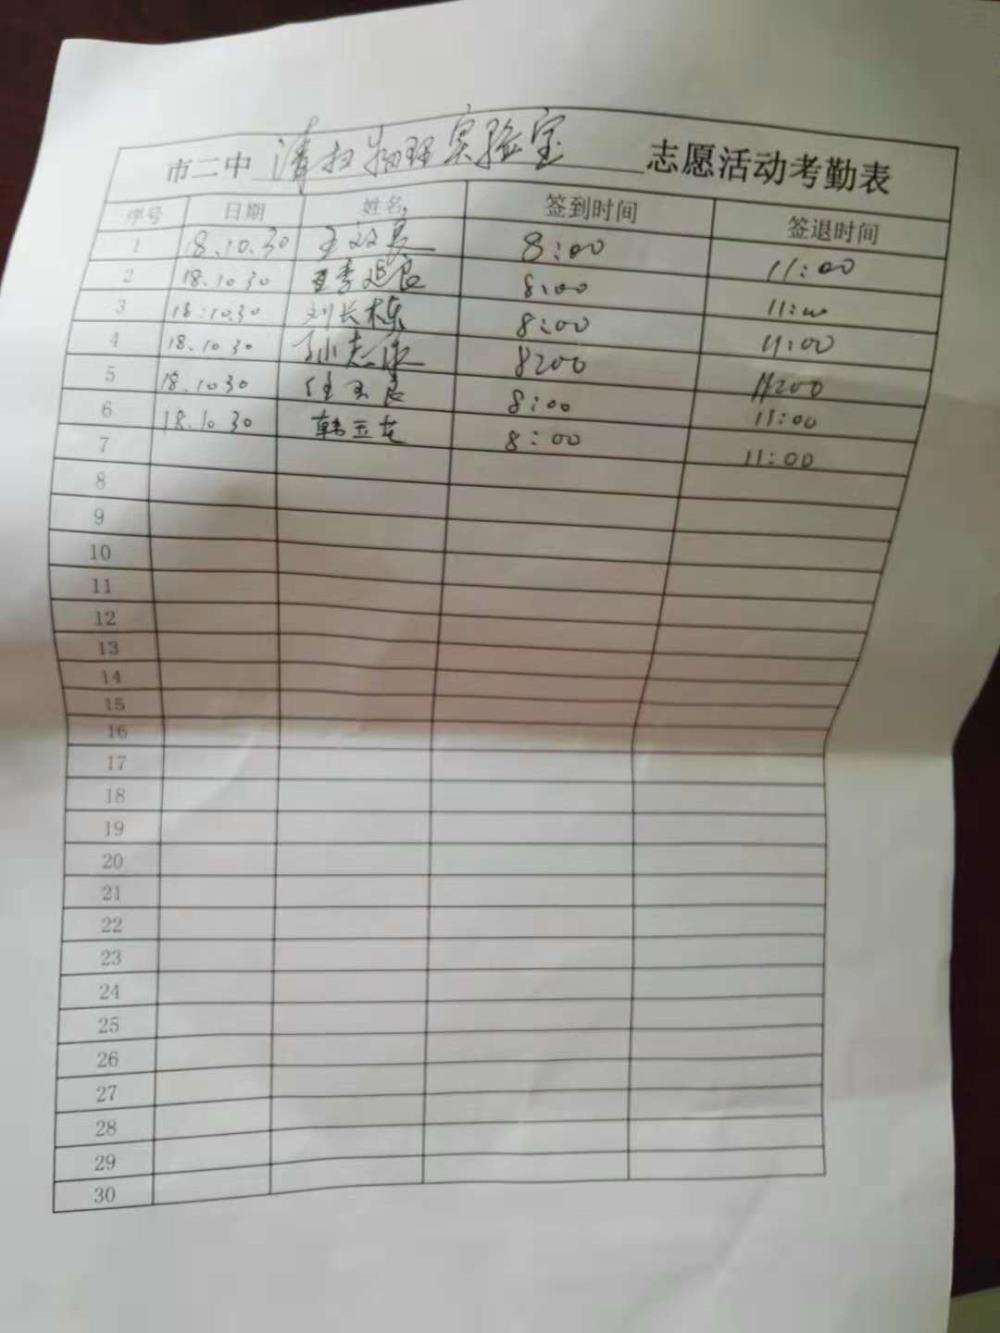 市二中 清扫物理实验室 志愿活动考勤表
序号 日期 姓名 签到时间 签退时间
1 18.10.30 8:00 11:00
2 18.10.30 李延良 8:00 11:00
3 18:10.30 刘长栋 8:00 11:00
4 18.10.30 8:00 11:00
5 18.10.30 8:00 11:00
6 18.10.30 韩玉龙 8:00 11:00
7
8
9
10
11
12
13
14
15
16
17
18
19
20
21
22
23
24
25
26
27
28
29
30